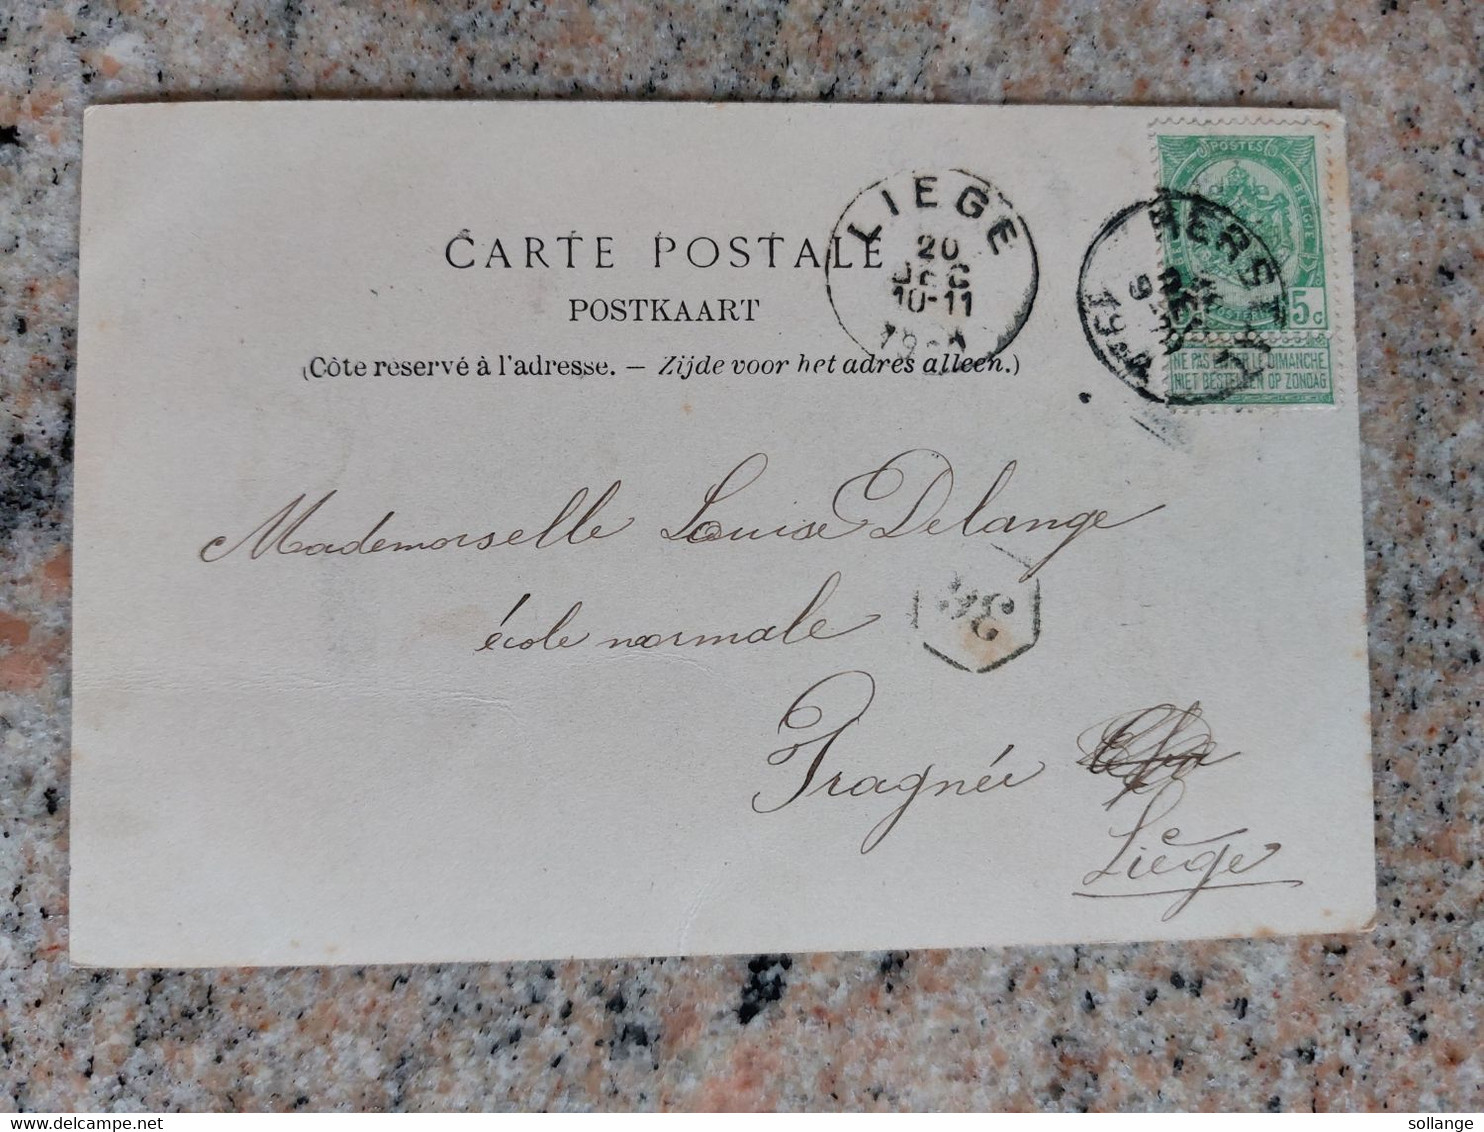 CARTE POSTALE
POSTKAART
(Côté réservé à l'adresse. — Zijde voor het adres alleen.)
LIEGE
20
DEC
10-11
POSTES
BELGIE
5c
NE PAS LIVRER LE DIMANCHE
NIET BESTELLEN OP ZONDAG
HERSTAL
Mademoiselle Louise Delange
école normale
Fragnée
Liège
delcampe.net
sollange